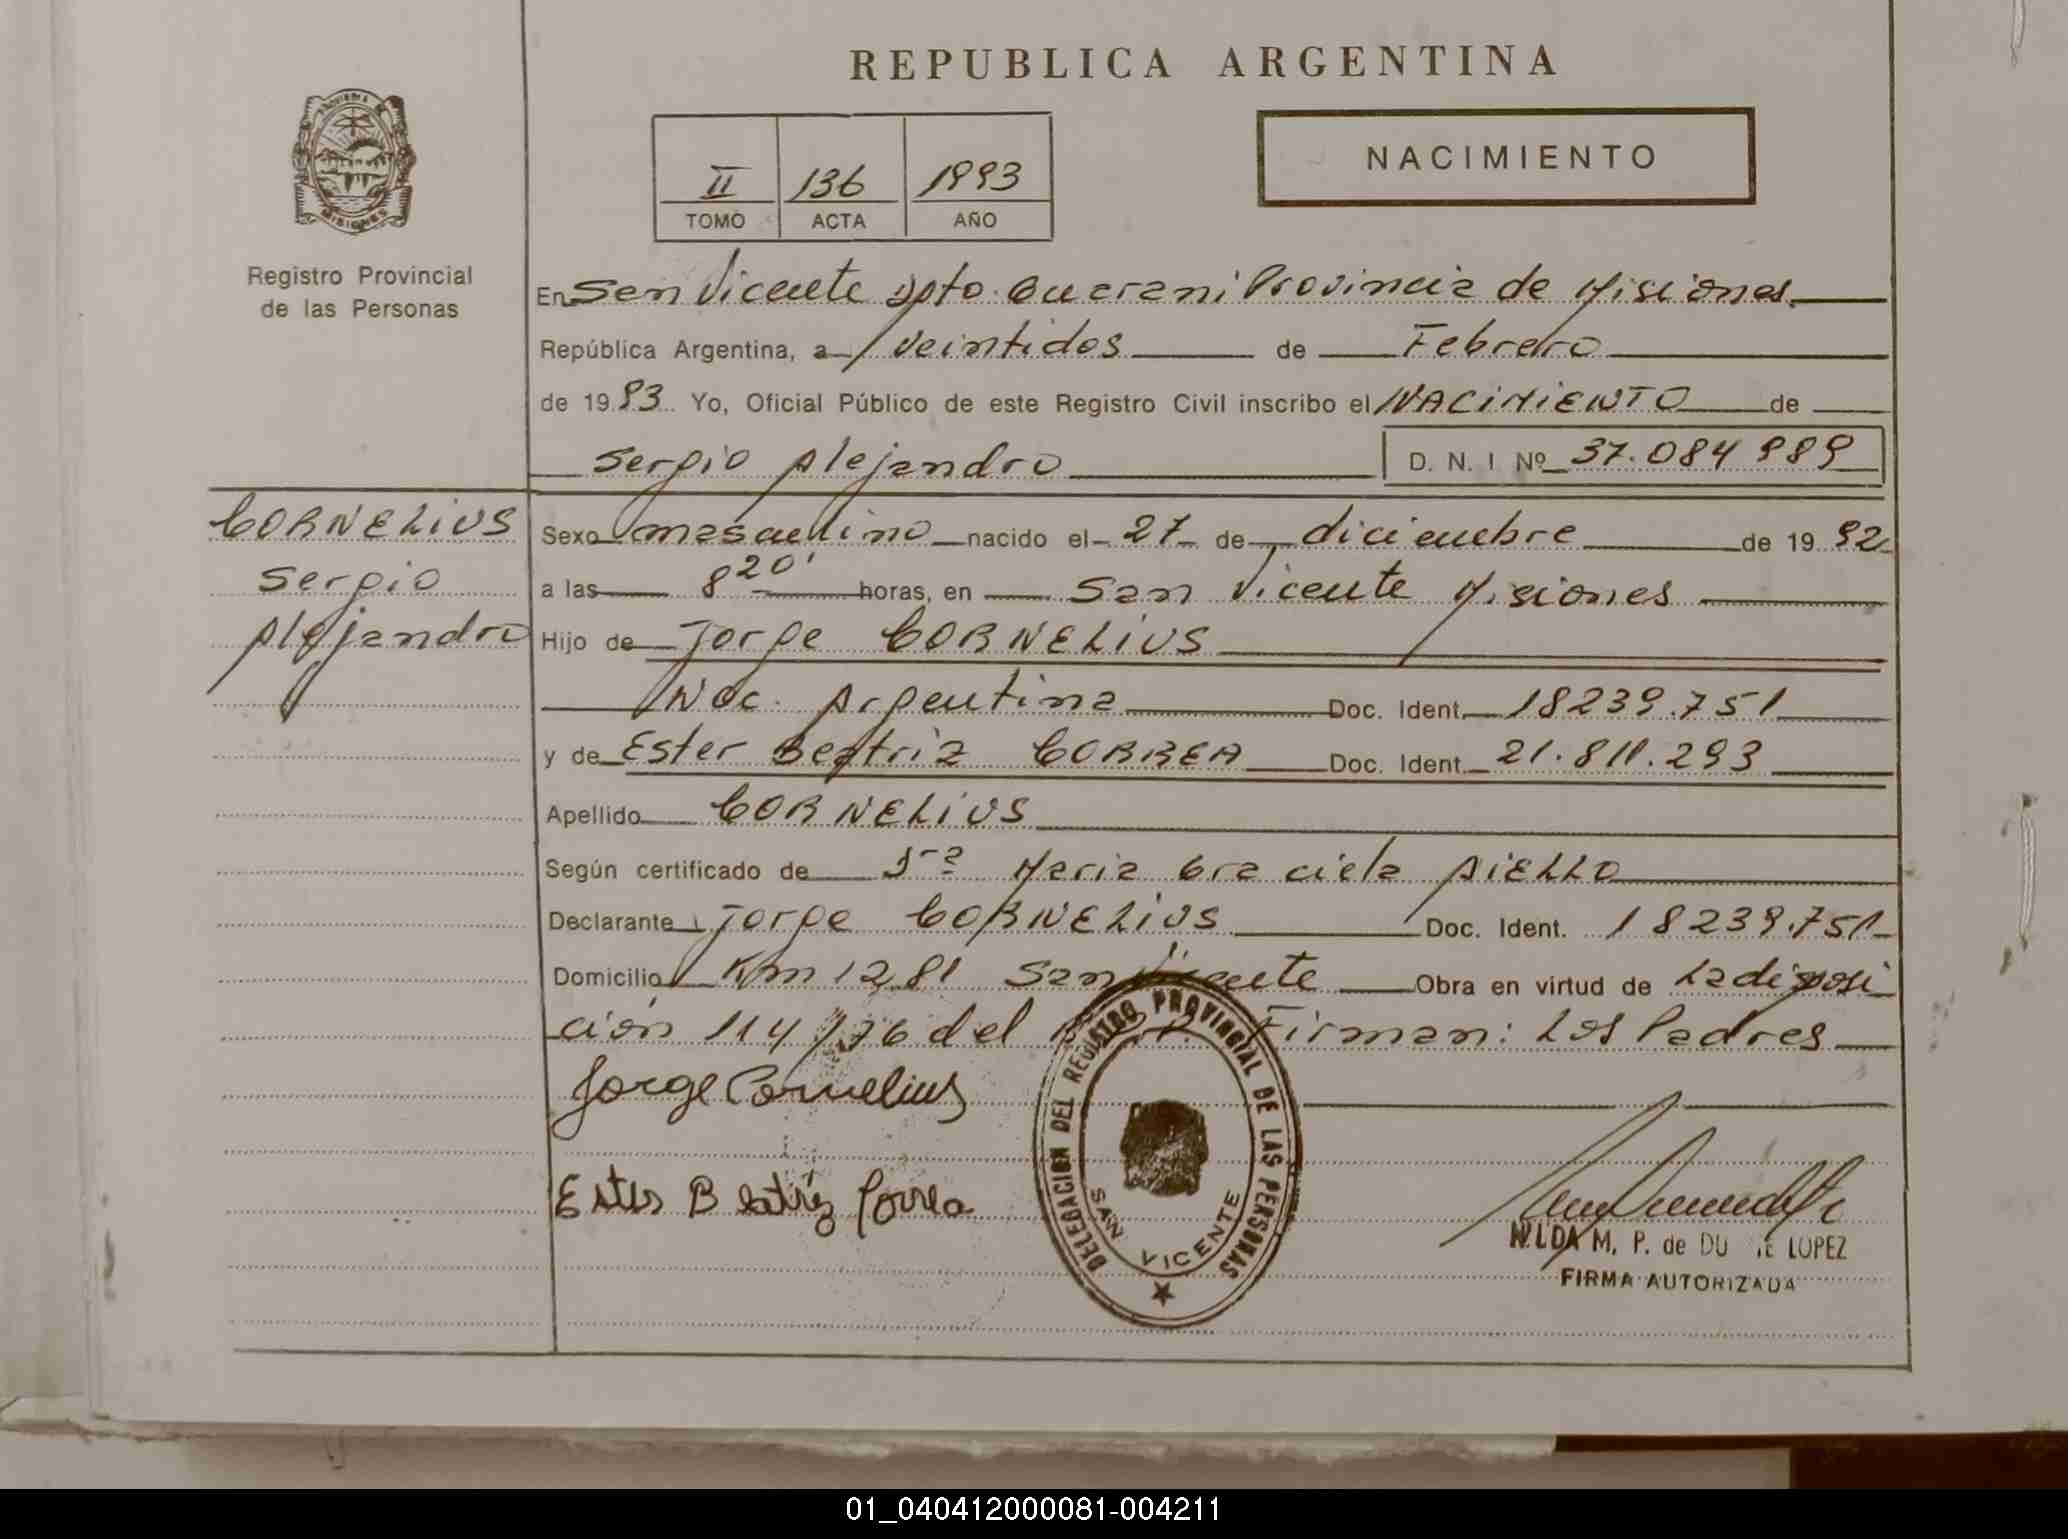 REPUBLICA ARGENTINA
PROVINCIA DE
MISIONES
Registro Provincial
de las Personas
II 136 1993
TOMO ACTA AÑO
NACIMIENTO
En San Vicente Dpto. Guarani Provincia de Misiones.
República Argentina, a veintidos de Febrero
de 1993 Yo, Oficial Público de este Registro Civil inscribo el NACIMIENTO de
Sergio Alejandro D. N. I Nº 37.084 989
CORNELIUS
Sergio
Alejandro
Sexo masculino nacido el 27 de diciembre de 1992
a las 8 20' horas, en San Vicente Misiones
Hijo de Jorge CORNELIUS
Nac. Argentina Doc. Ident. 18239.751
y de Ester Beatriz CORREA Doc. Ident. 21.811.293
Apellido CORNELIUS
Según certificado de Maria Graciela AIELLO
Declarante Jorge CORNELIUS Doc. Ident. 18239.751
Domicilio Km 1281 San Vicente Obra en virtud de La disposi
ción 114/76 del Firman: Los Padres
Jorge Cornelius
Ester Beatriz Correa
DELEGACION DEL REGISTRO PROVINCIAL DE LAS PERSONAS
SAN VICENTE
M. P. de LOPEZ
FIRMA AUTORIZADA
01_040412000081-004211